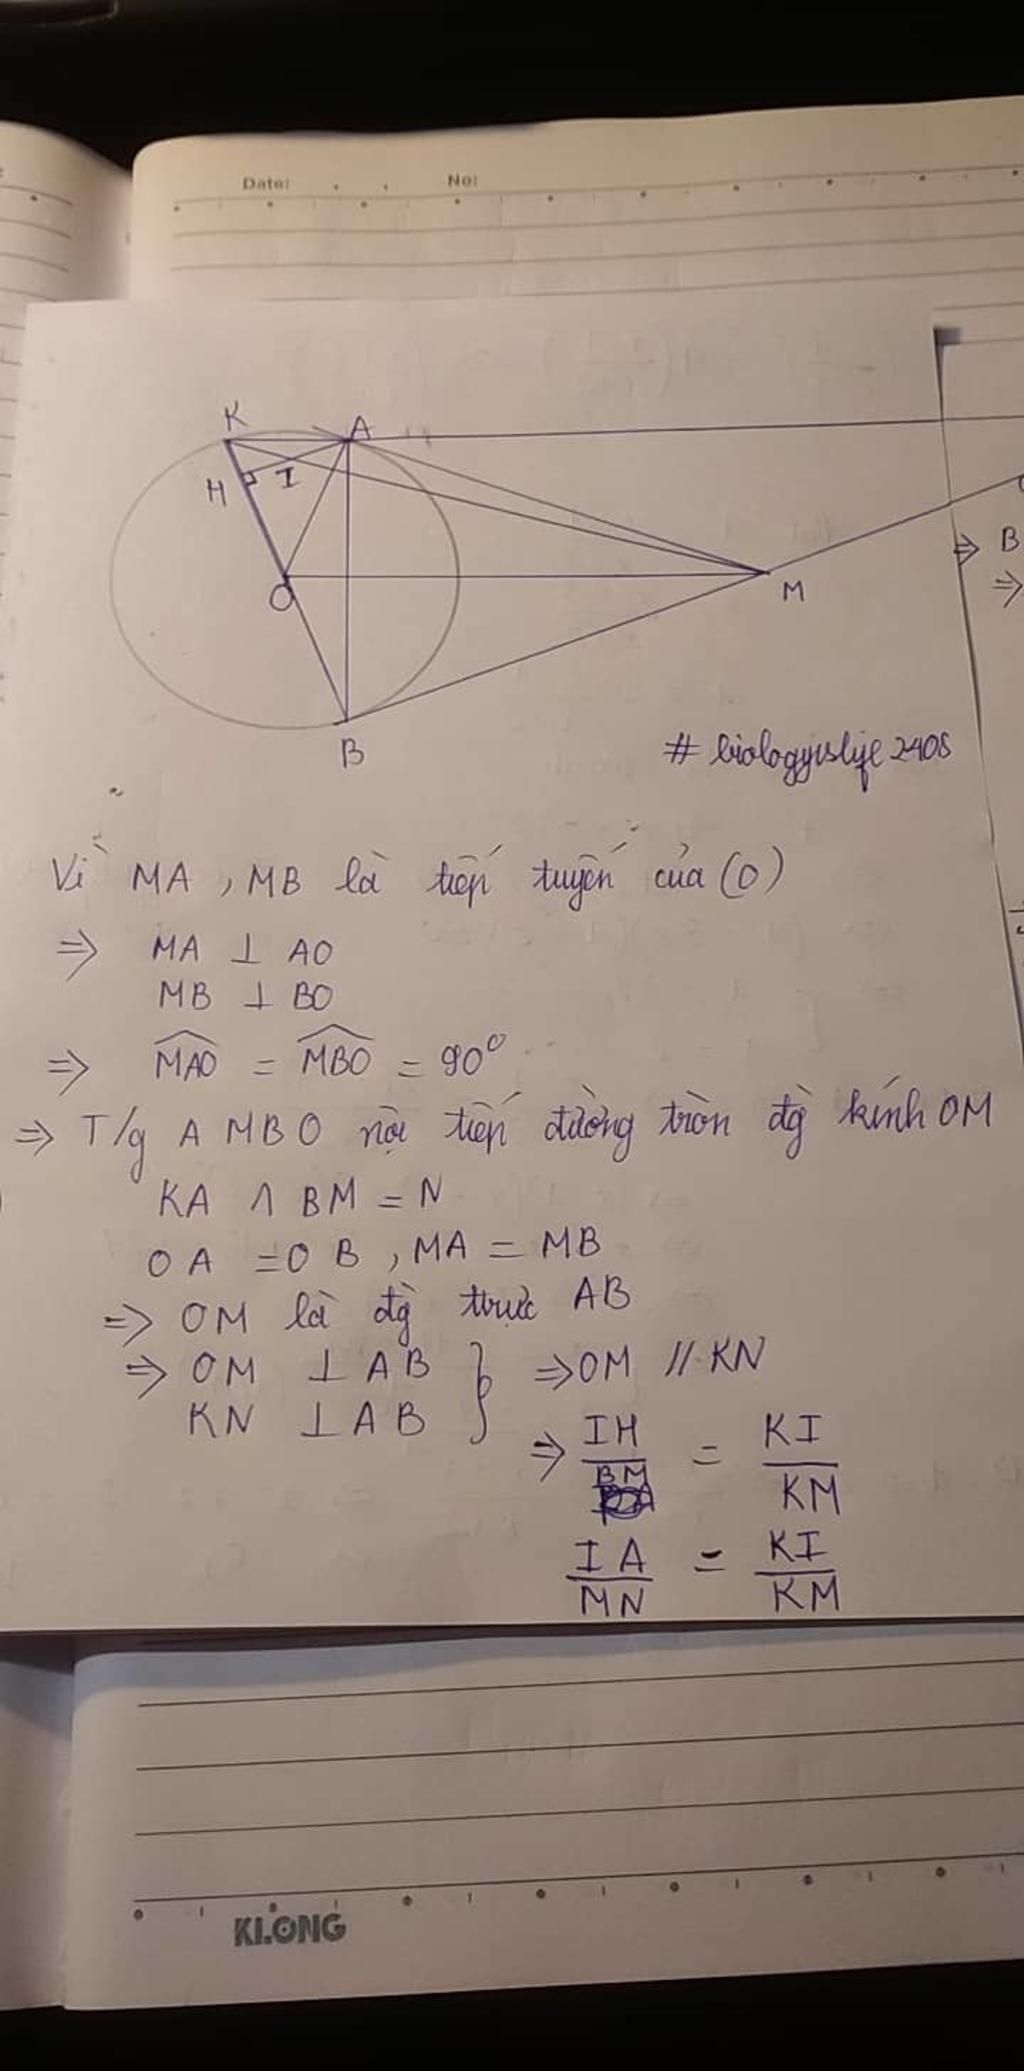 Date: No:
K A
H I
O M
B
⇒ B
⇒
# biologyislife2408
Vì MA, MB là tiếp tuyến của (O)
⇒ MA ⊥ AO
MB ⊥ BO
⇒ \widehat{MAO} = \widehat{MBO} = 90°
⇒ T/g AMBO nội tiếp đường tròn đg kính OM
KA ∩ BM = N
OA = OB, MA = MB
⇒ OM là đg trực AB
⇒ OM ⊥ AB } ⇒ OM // KN
KN ⊥ AB
⇒ IH/BM = KI/KM
IA/MN = KI/KM
KLONG